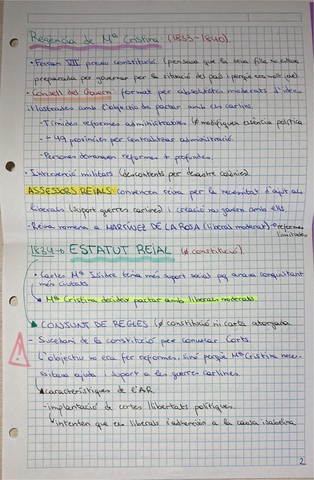 Regència de Mª Cristina (1833-1840).
• Ferran VII preveu constitució. (pensava que la seva filla no estava
preparada per governar per la situació del país i perquè era molt
• Consell del Govern format per absolutistes moderats d'idees
il·lustrades amb l'objectiu de pactar amb els carlins.
- Tímides reformes administratives. (ø modifiquen essència política
- + 49 províncies per centralitzar administració.
- Persones demanaven reformes + profundes.
• Intervenció militars (descontents per desastre colònies).
ASSESSORS REIALS convencen reina per la necessitat d'ajut als
liberals (suport guerres carlines) i creació nou govern amb ells.
- Reina nomena a MARTÍNEZ DE LA ROSA (liberal moderat) → reformes
limitades
1834 → ESTATUT REIAL (ø constitució).
• Carles Mª Isidre tenia més suport social pq anava conquistant
més ciutats
↳ Mª Cristina decideix pactar amb liberals moderats
CONJUNT DE REGLES (ø constitució ni carta atorgada
- Succedani de la constitució per convocar Corts.
L'objectiu no era fer reformes, sinó perquè Mª Cristina nece-
ssitava ajuda i suport a les guerres carlines.
↳ característiques de l'AR
- implantació de certes llibertats polítiques.
↳ intenten que els liberals s'adhereixin a la causa isabelina
2